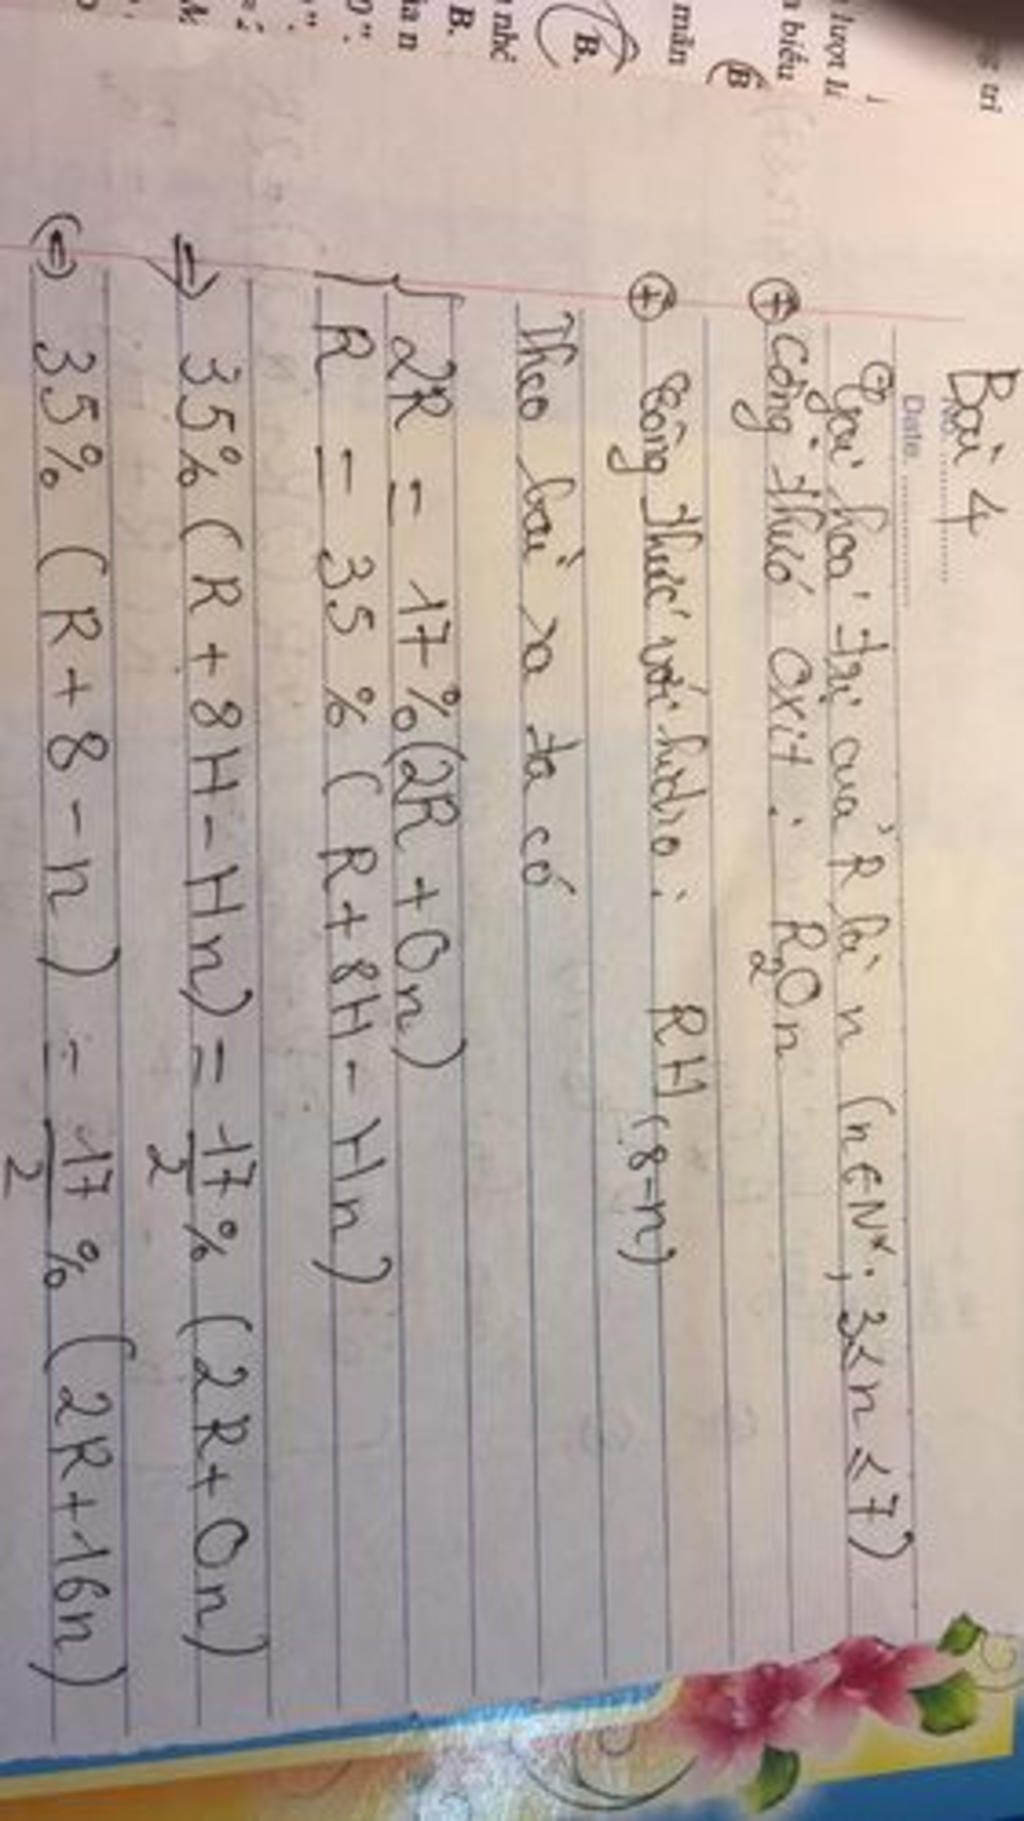 Bài 4
No.
Date.
Gọi hoá trị của R là n (n ∈ N*, 3 < n < 7)
+ Công thức oxit : R₂On
+ Công thức với hidro : RH (8-n)
Theo bài ra ta có
{ 2R = 17% (2R + On)
R = 35 % (R + 8H - Hn)
=> 35% (R + 8H - Hn) = 17/2 % (2R + On)
(=) 35% (R + 8 - n) = 17/2 % (2R + 16n)
lượt lí
biểu
B
mãn
B.
nhê
B.